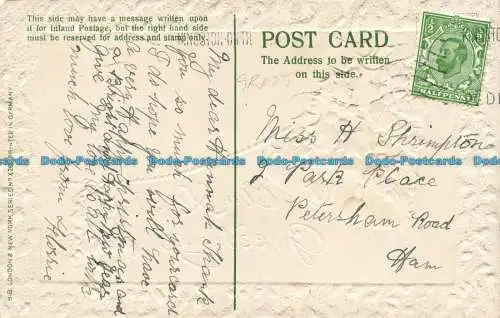 This side may have a message written upon
it for Inland Postage, but the right hand side
must be reserved for address and stamp only.
POST CARD
The Address to be written
on this side.
HALFPENNY
Miss H Shrimpton
2 Park Place
Petersham Road
Ham
My dear Hannah Thank
you so much for your card
I do hope you will have
a very Happy Christmas and
a Bright and Happy New Year
Give my love to all with
much love from Florrie
H.B. LONDON & NEW YORK SERIES No PRINTED IN GERMANY
Dodo-Postcards Dodo-Postcards Dodo-Postcards Dodo-Postcards
Dodo-Postcards Dodo-Postcards Dodo-Postcards Dodo-Postcards